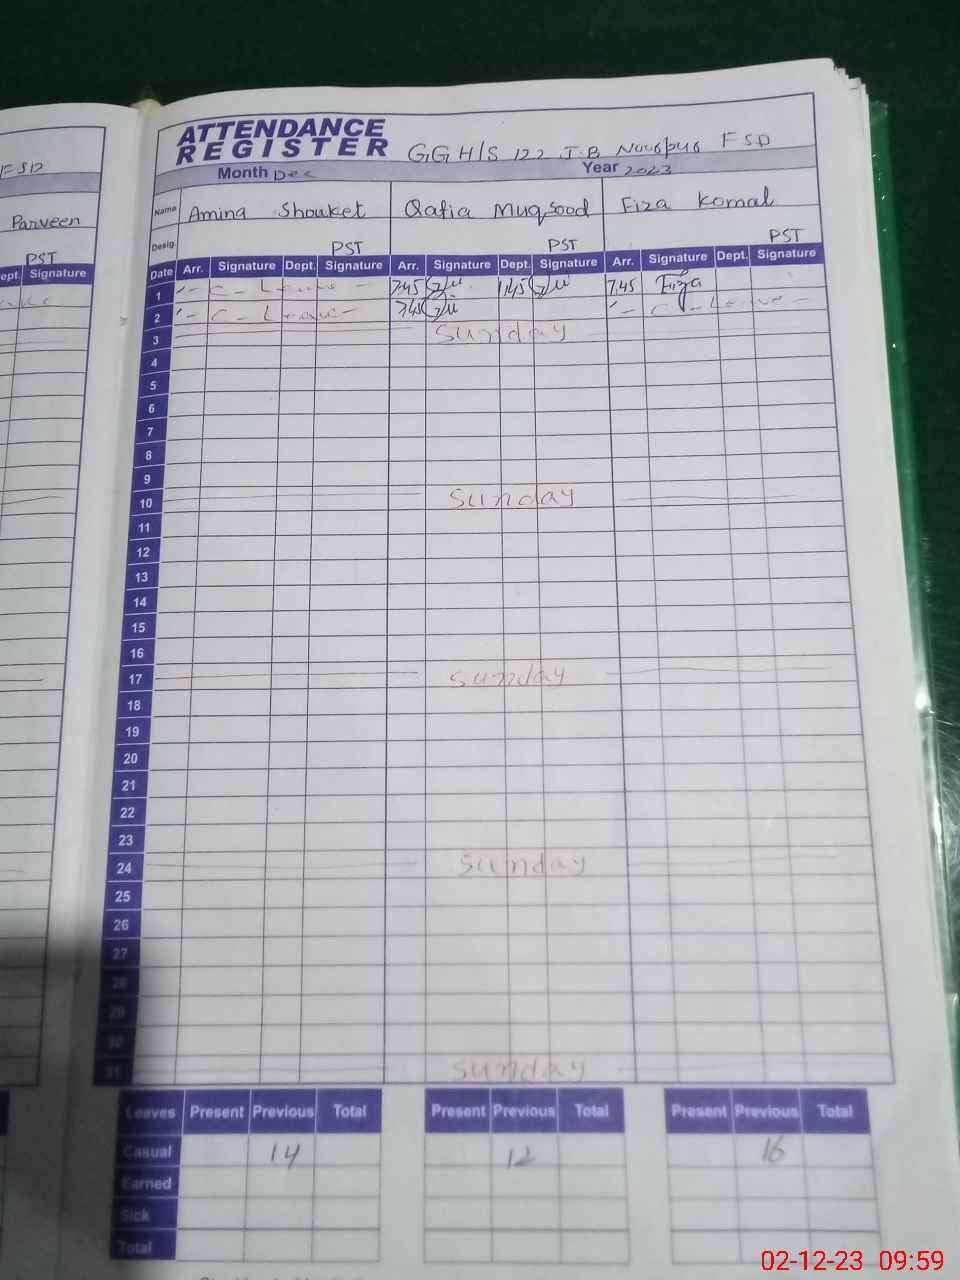 FSD
Parveen
PST
ept. Signature
ATTENDANCE
REGISTER GGH/S 122 J.B Nourpur FSD
Month Dec Year 2023
Name Amina Shouket Qafia Muqsood Fiza Komal
Desig. PST PST PST
Date Arr. Signature Dept. Signature Arr. Signature Dept. Signature Arr. Signature Dept. Signature
1 - C - Leave - 7:45 1:45 7:45 Fiza
2 - C - Leave - 7:45 - C - Leave -
3 Sunday
4
5
6
7
8
9
10 Sunday
11
12
13
14
15
16
17 Sunday
18
19
20
21
22
23
24 Sunday
25
26
27
28
29
30
31 Sunday
Leaves Present Previous Total Present Previous Total Present Previous Total
Casual 14 12 16
Earned
Sick
Total
02-12-23 09:59